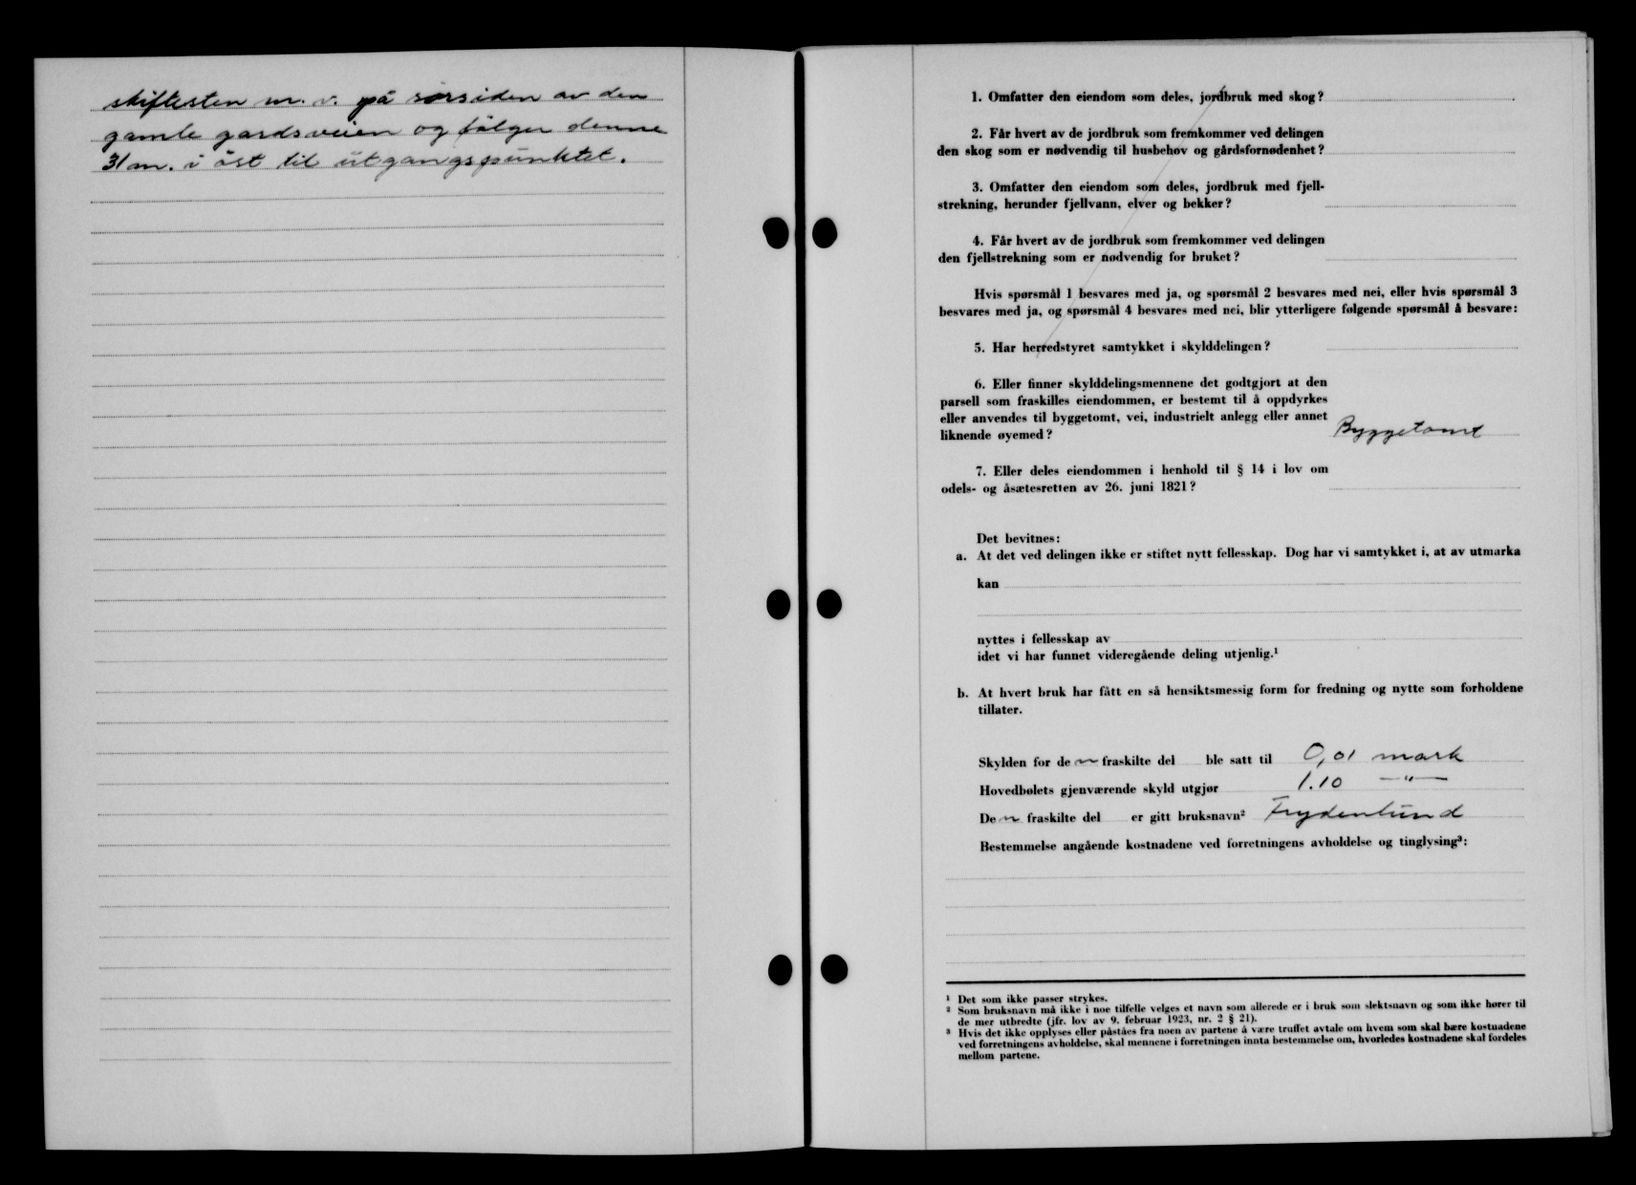 skiftesten m. v. på sørsiden av den
gamle gardsveien og følger denne
31 m. i øst til utgangspunktet.
1. Omfatter den eiendom som deles, jordbruk med skog?
2. Får hvert av de jordbruk som fremkommer ved delingen
den skog som er nødvendig til husbehov og gårdsfornødenhet?
3. Omfatter den eiendom som deles, jordbruk med fjell-
strekning, herunder fjellvann, elver og bekker?
4. Får hvert av de jordbruk som fremkommer ved delingen
den fjellstrekning som er nødvendig for bruket?
Hvis spørsmål 1 besvares med ja, og spørsmål 2 besvares med nei, eller hvis spørsmål 3
besvares med ja, og spørsmål 4 besvares med nei, blir ytterligere følgende spørsmål å besvare:
5. Har herredstyret samtykket i skylddelingen?
6. Eller finner skylddelingsmennene det godtgjort at den
parsell som fraskilles eiendommen, er bestemt til å oppdyrkes
eller anvendes til byggetomt, vei, industrielt anlegg eller annet
liknende øyemed? Byggetomt
7. Eller deles eiendommen i henhold til § 14 i lov om
odels- og åsætesretten av 26. juni 1821?
Det bevitnes:
a. At det ved delingen ikke er stiftet nytt fellesskap. Dog har vi samtykket i, at av utmarka
kan
nyttes i fellesskap av
idet vi har funnet videregående deling utjenlig.¹
b. At hvert bruk har fått en så hensiktsmessig form for fredning og nytte som forholdene
tillater.
Skylden for den fraskilte del ble satt til 0,01 mark
Hovedbølets gjenværende skyld utgjør 1.10 —"—
Den fraskilte del er gitt bruksnavn² Frydenlund
Bestemmelse angående kostnadene ved forretningens avholdelse og tinglysing³:
¹ Det som ikke passer strykes.
² Som bruksnavn må ikke i noe tilfelle velges et navn som allerede er i bruk som slektsnavn og som ikke hører til
de mer utbredte (jfr. lov av 9. februar 1923, nr. 2 § 21).
³ Hvis det ikke opplyses eller påståes fra noen av partene å være truffet avtale om hvem som skal bære kostnadene
ved forretningens avholdelse, skal mennene i forretningen innta bestemmelse om, hvorledes kostnadene skal fordeles
mellom partene.